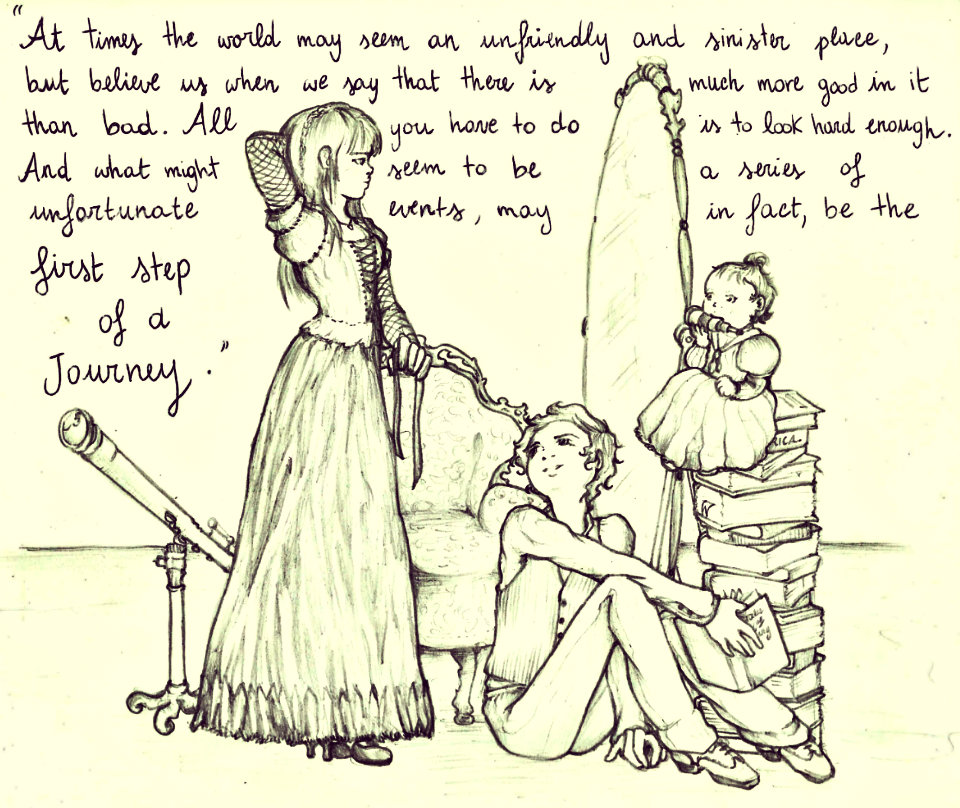 "At times the world may seem an unfriendly and sinister place,
but believe us when we say that there is much more good in it
than bad. All you have to do is to look hard enough.
And what might seem to be a series of
unfortunate events, may in fact, be the
first step
of a
Journey."
RICA